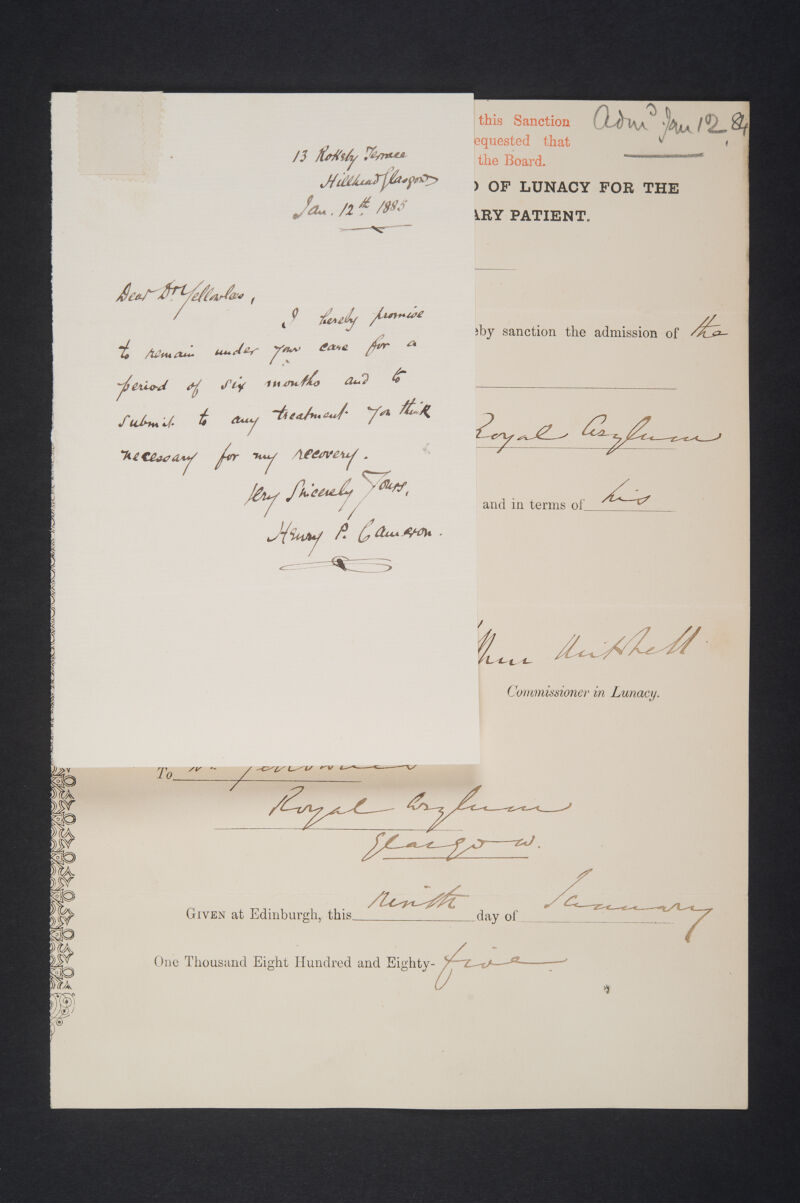 13 Roksby Terrace
Hillhead Glasgow
Jan. 12th 1885
Dear Dr Yellowlees,
I hereby promise
to remain under your care for a
period of six months and to
submit to any treatment you think
necessary for my recovery.
Very Sincerely Yours,
Henry P. Cameron.
this Sanction
equested that
the Board.
Admd Jan 12 84
OF LUNACY FOR THE
ARY PATIENT.
eby sanction the admission of the
Royal Asylum
and in terms of his
Mitchell
Commissioner in Lunacy.
To
Royal Asylum
Glasgow.
GIVEN at Edinburgh, this ninth day of January
One Thousand Eight Hundred and Eighty-five